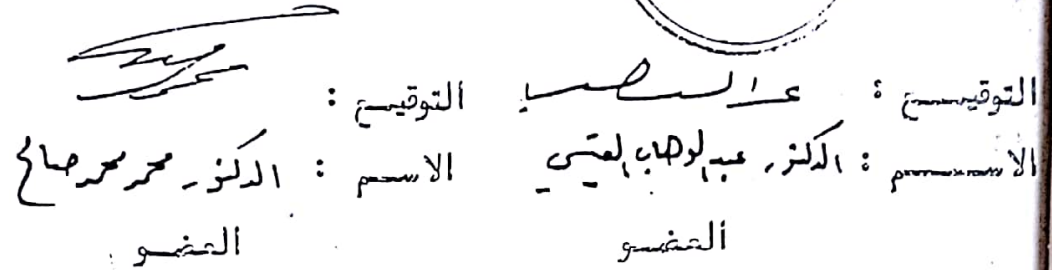 التوقيع : التوقيع :
الاسم : الدكتور عبدالوهاب العتبي الاسم : الدكتور محمد محمد صالح
العضو العضو